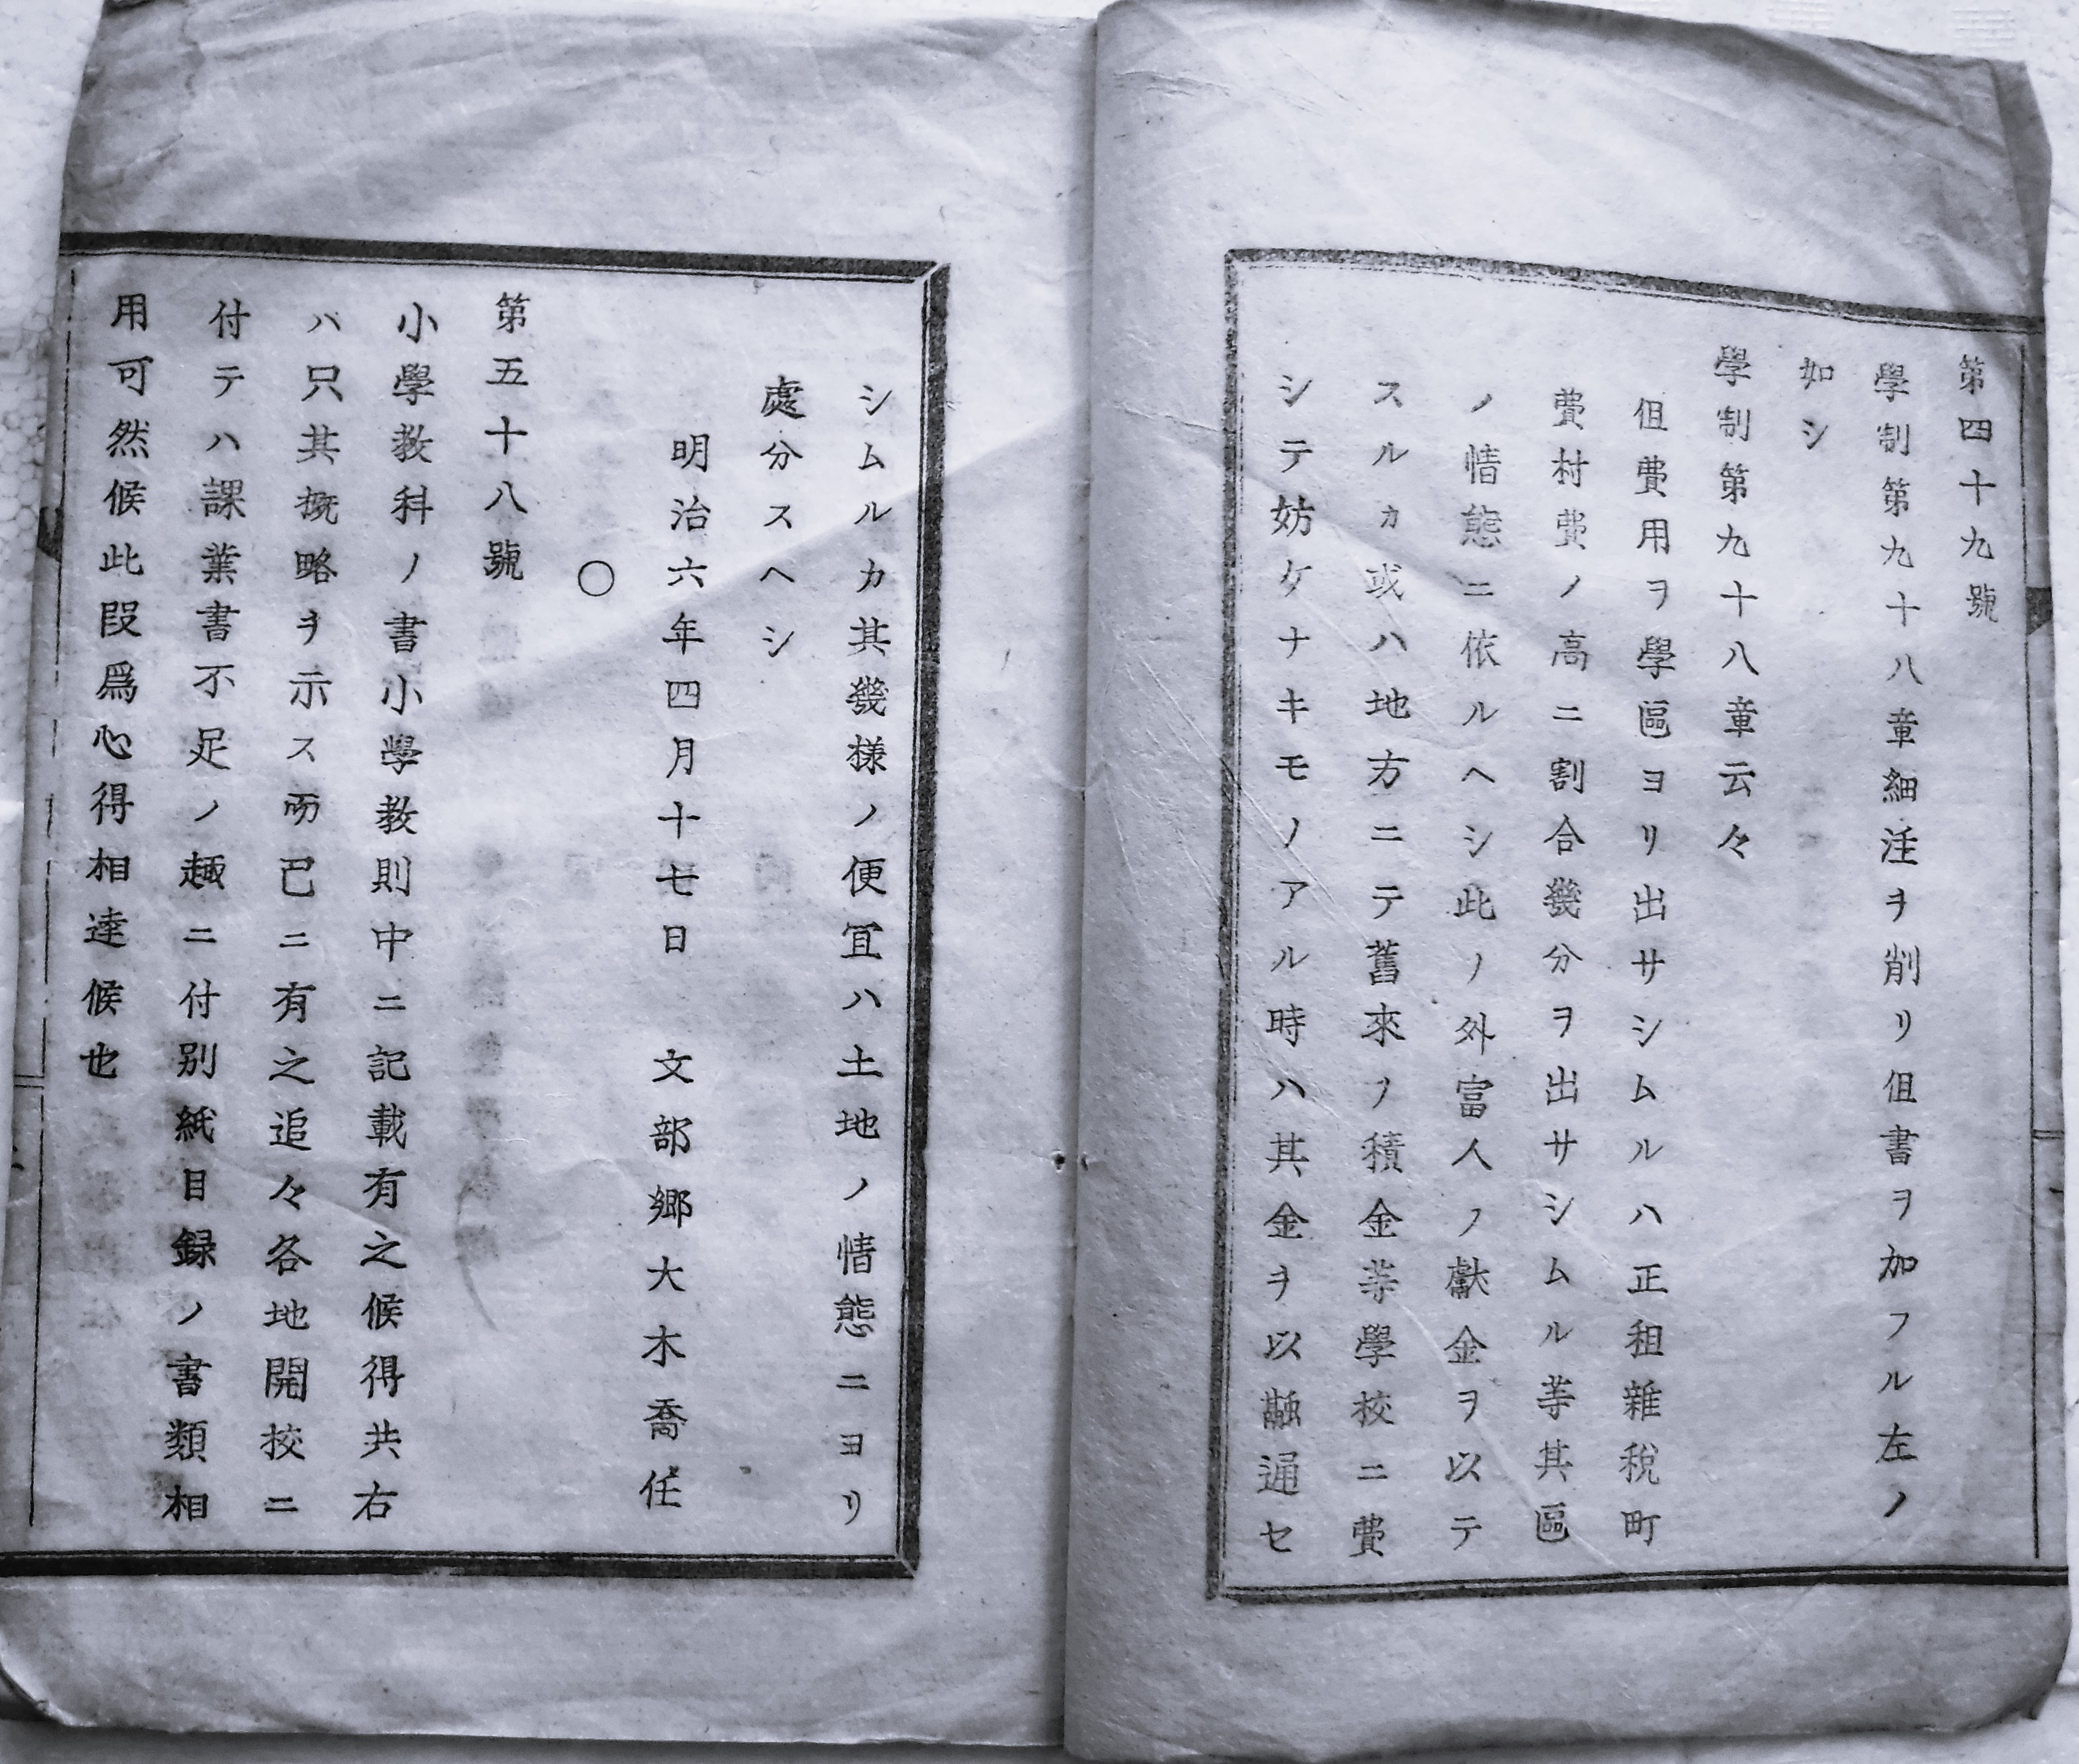 第四十九號
學制第九十八章細注ヲ削リ伹書ヲ加フル左ノ
如シ
學制第九十八章云々
伹費用ヲ學區ヨリ出サシムルハ正租雜稅町
費村費ノ高ニ割合幾分ヲ出サシムル等其區
ノ情態ニ依ルヘシ此ノ外富人ノ獻金ヲ以テ
スルカ或ハ地方ニテ舊來ノ積金等學校ニ費
シテ妨ケナキモノアル時ハ其金ヲ以融通セ
シムルカ其幾樣ノ便宜ハ土地ノ情態ニヨリ
處分スヘシ
明治六年四月十七日 文部郷大木喬任
〇
第五十八號
小學教科ノ書小學教則中ニ記載有之候得共右
ハ只其概略ヲ示ス而巳ニ有之追々各地開校ニ
付テハ課業書不足ノ趣ニ付別紙目録ノ書類相
用可然候此段爲心得相達候也